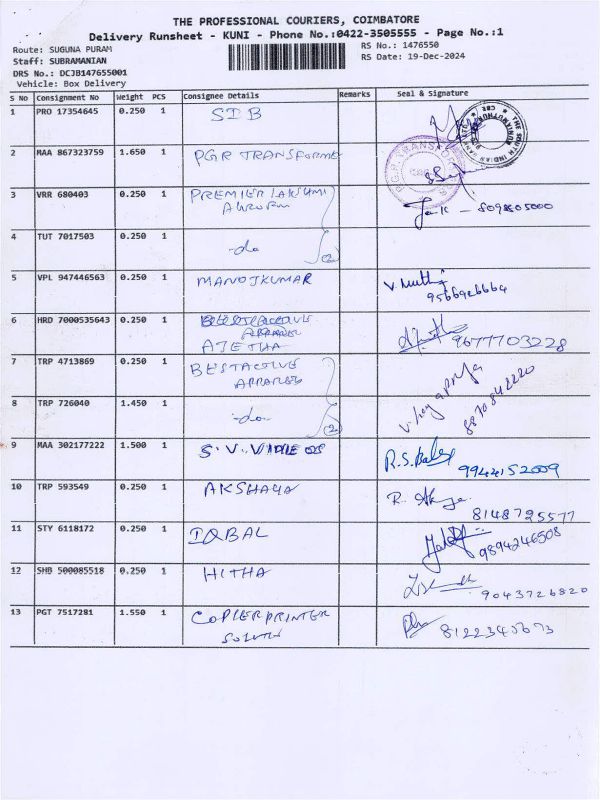 THE PROFESSIONAL COURIERS, COIMBATORE
Delivery Runsheet - KUNI - Phone No.:0422-3505555 - Page No.:1
Route: SUGUNA PURAM RS No.: 1476550
Staff: SUBRAMANIAN RS Date: 19-Dec-2024
DRS No.: DCJB147655001
Vehicle: Box Delivery
S No Consignment No Weight PCS Consignee Details Remarks Seal & Signature
1 PRO 17354645 0.250 1 SIB
2 MAA 867323759 1.650 1 PGR TRANSFORME
P.G.R. TRANSFORMERS
3 VRR 680403 0.250 1 PREMIER LAKSHMI
4 TUT 7017503 0.250 1 -do (2)
5 VPL 947446563 0.250 1 MANOJKUMAR V. Muthu
9566926664
6 HRD 7000535643 0.250 1
AJETHA 9677703228
7 TRP 4713869 0.250 1 BESTACTIVE
APPARELS
8 TRP 726040 1.450 1 -do- (2) 8870842220
9 MAA 302177222 1.500 1 S.V. R.S. 9944152009
10 TRP 593549 0.250 1 AKSHAYA R. 8148725577
11 STY 6118172 0.250 1 IQBAL 9894246508
12 SHB 500085518 0.250 1 HITHA 9043726820
13 PGT 7517281 1.550 1 COPIER PRINTER 8122340673